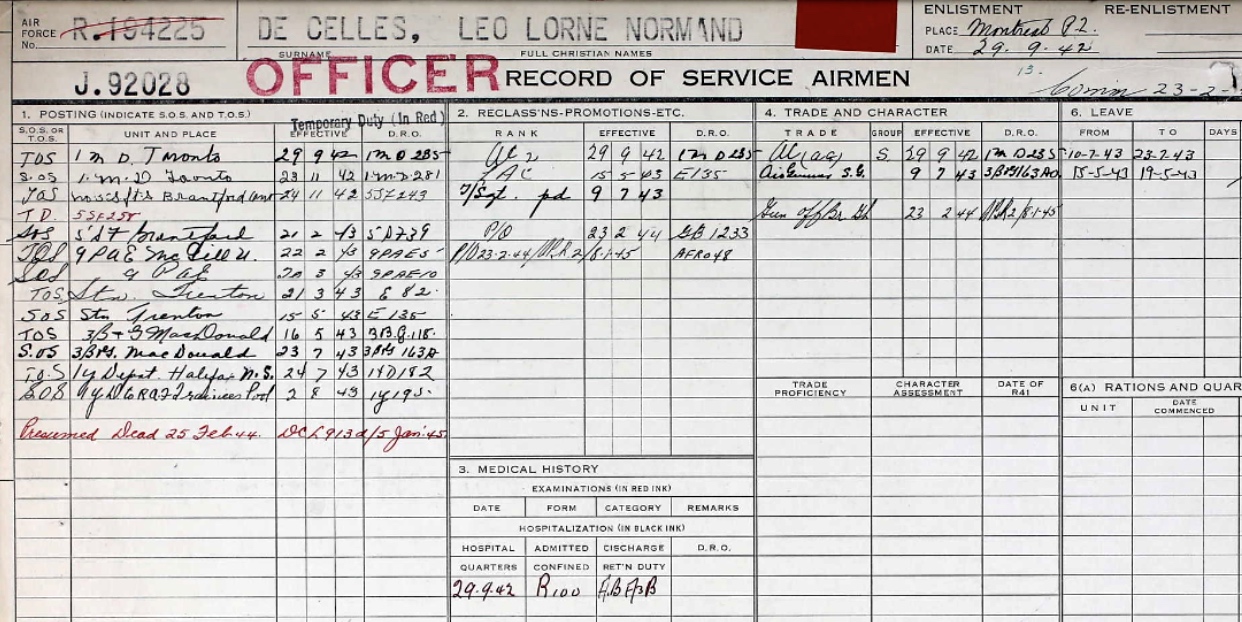 AIR FORCE No. R.194225 DE CELLES, LEO LORNE NORMAND
SURNAME FULL CHRISTIAN NAMES
ENLISTMENT RE-ENLISTMENT
PLACE Montreal P2.
DATE 29. 9. 42
J.92028 OFFICER RECORD OF SERVICE AIRMEN
13. Comm 23-2-
1. POSTING (INDICATE S.O.S. AND T.O.S.) Temporary Duty (In Red)
S.O.S. OR T.O.S. UNIT AND PLACE EFFECTIVE D.R.O.
TOS 1 M D. Toronto 29 9 42 1 M D 235
S.OS 1. M. D Toronto 23 11 42 1-M-D-281
TOS Brantford Ont 24 11 42 5SF243
T.D. 5SF258
SOS Brantford 21 2 43 5D739
TOS 9 PAE McGill U. 22 2 43 9PAE5
SOS 9 PAE 20 3 43 9PAE10
TOS Stn. Trenton 21 3 43 E 82.
SOS Stn Trenton 15 5 43 E 135
TOS 3B+G MacDonald 16 5 43 3B.G.118.
S.OS 3B+G. MacDonald 23 7 43 3B+G 163A
T.O.S 1Y Depot. Halifax N.S. 24 7 43 1YD182
SOS 1Y D to RAF Trainees Pool 2 8 43 1Y195.
Presumed Dead 25 Feb 44. DCL913 d/5 Jan 45
2. RECLASS'NS-PROMOTIONS-ETC.
RANK EFFECTIVE D.R.O.
AC 2 29 9 42 1 M D 235
LAC 15 5 43 E135
T/Sgt. pd 9 7 43
P/O 23 2 44 GB 1233
P/O 23-2-44/APR 2/8-1-45 AFRO48
3. MEDICAL HISTORY
EXAMINATIONS (IN RED INK)
DATE FORM CATEGORY REMARKS
HOSPITALIZATION (IN BLACK INK)
HOSPITAL ADMITTED DISCHARGE D.R.O.
QUARTERS CONFINED RET'N DUTY
29-9-42 R100 A1B A3B
4. TRADE AND CHARACTER
TRADE GROUP EFFECTIVE D.R.O.
AC(ag) S. 29 9 42 1 M D235
Air Gunner S.G. 9 7 43 3B+G163A
23 2 44 APR2/8-1-45
TRADE PROFICIENCY CHARACTER ASSESSMENT DATE OF R41
6. LEAVE
FROM TO DAYS
10-7-43 23-7-43
15-5-43 19-5-43
6(A) RATIONS AND QUAR
UNIT DATE COMMENCED